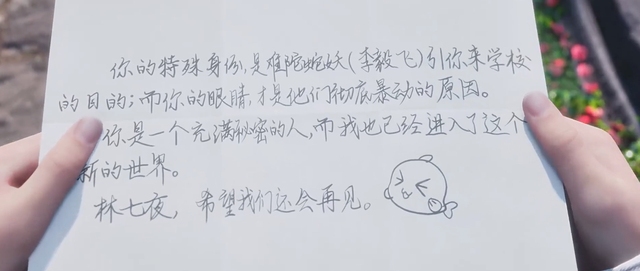 你的特殊身份,是难陀蛇妖(李毅飞)引你来学校
的目的;而你的眼睛,才是他们彻底暴动的原因。
你是一个充满秘密的人,而我也已经进入了这个
新的世界。
林七夜,希望我们还会再见。